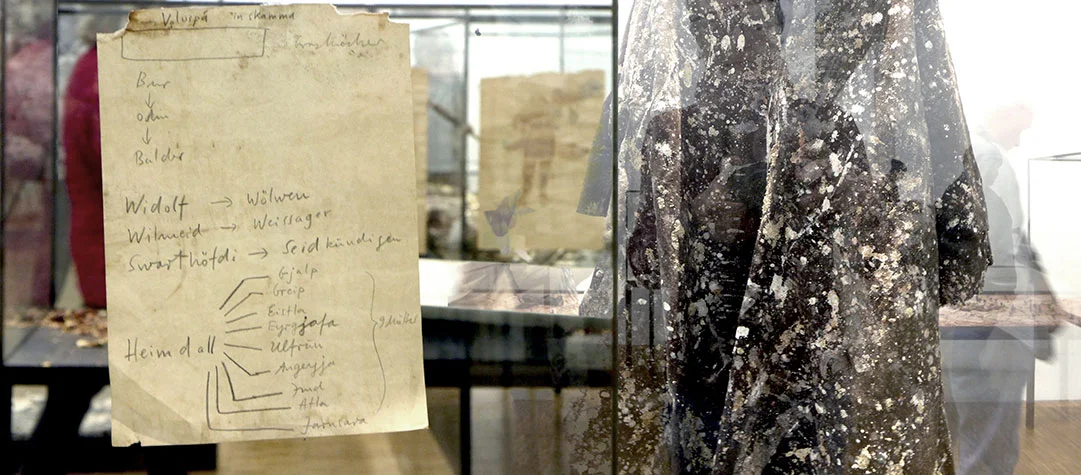 Voluspá in skamma
Bur
Odin
Baldir
Widolf → Wölwen
Wilmeid → Weissager
Swarthöfdi → Seidkündigen
Gjalp
Greip
Eistla
Eyrgjafa
9 Mütter
Ulfrun
Heimdall
Angeyja
Imd
Atla
Jarnsaxa